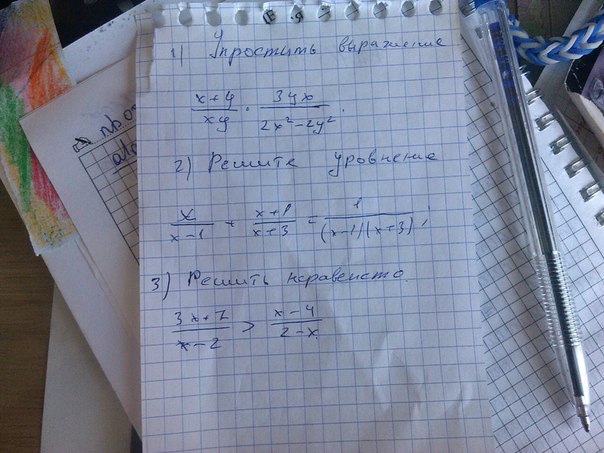 1) Упростить выражение
x+y/xy · 3yx/2x²-2y².
2) Решите уровнение
x/x-1 + x+1/x+3 = 1/(x-1)(x+3);
3) Решить неравенсто.
3x+7/x-2 > x-4/2-x.